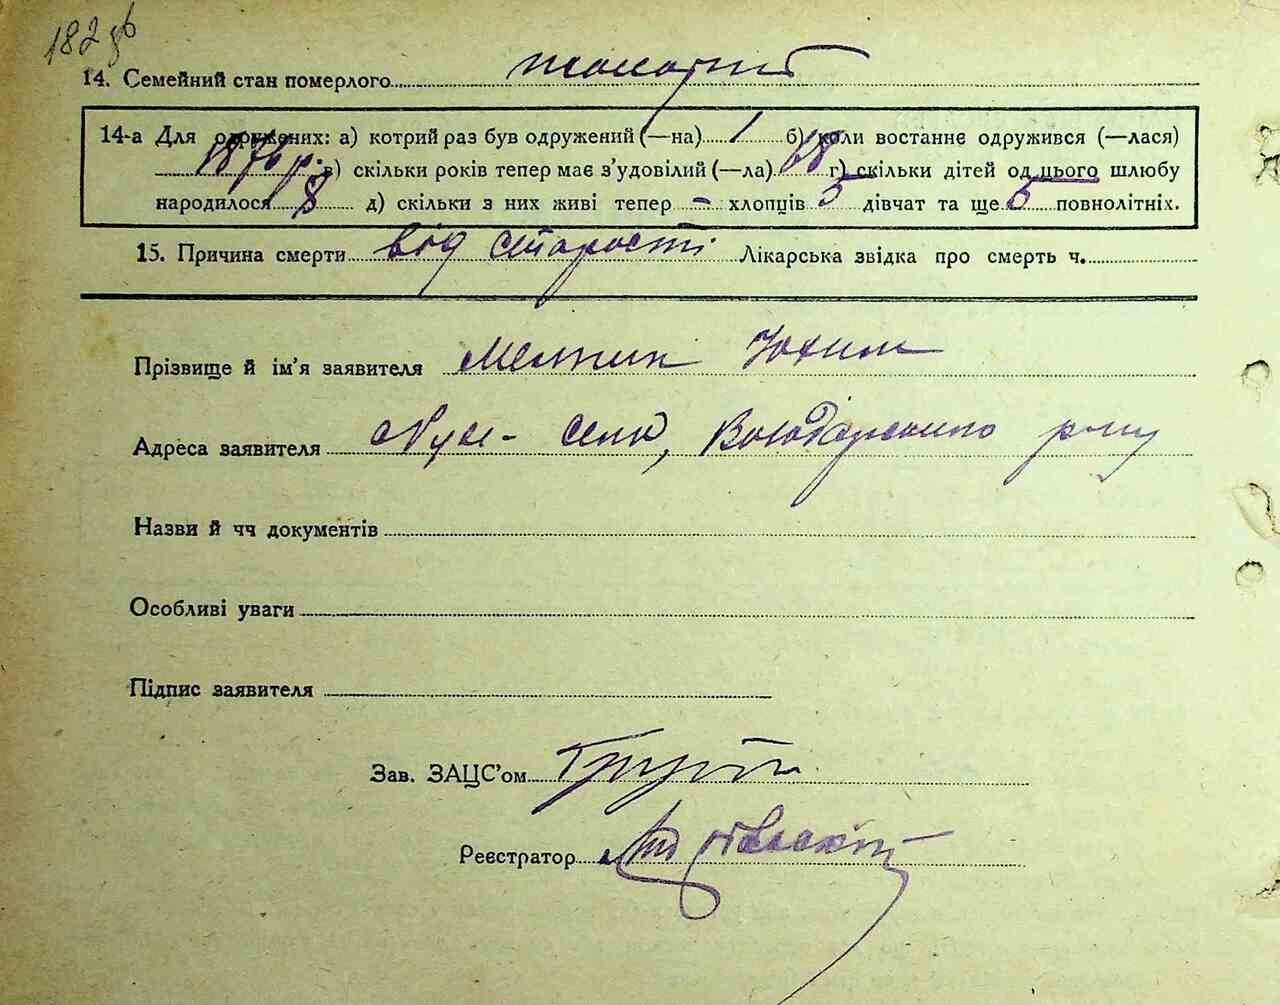 182 зв
14. Семейний стан померлого
14-а Для одружених: а) котрий раз був одружений (—на) 1 б) коли востаннє одружився (—лася)
1876 р. в) скільки років тепер має з'удовілий (—ла) г) скільки дітей од цього шлюбу
народилося 8 д) скільки з них живі тепер - хлопців 5 дівчат та ще 5 повнолітніх.
15. Причина смерти від старості Лікарська звідка про смерть ч.
Прізвище й ім'я заявителя Мельник Юхим
Адреса заявителя село, Володарського р-ну
Назви й чч документів
Особливі уваги
Підпис заявителя
Зав. ЗАЦС'ом
Реєстратор